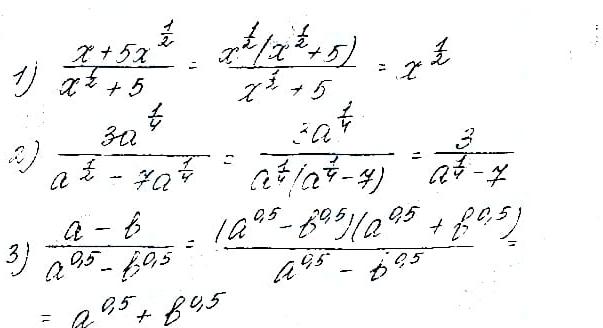 1) (x + 5x^(1/2)) / (x^(1/2) + 5) = (x^(1/2)(x^(1/2) + 5)) / (x^(1/2) + 5) = x^(1/2)
2) (3a^(1/4)) / (a^(1/2) - 7a^(1/4)) = (3a^(1/4)) / (a^(1/4)(a^(1/4) - 7)) = 3 / (a^(1/4) - 7)
3) (a - b) / (a^0,5 - b^0,5) = ((a^0,5 - b^0,5)(a^0,5 + b^0,5)) / (a^0,5 - b^0,5) =
= a^0,5 + b^0,5